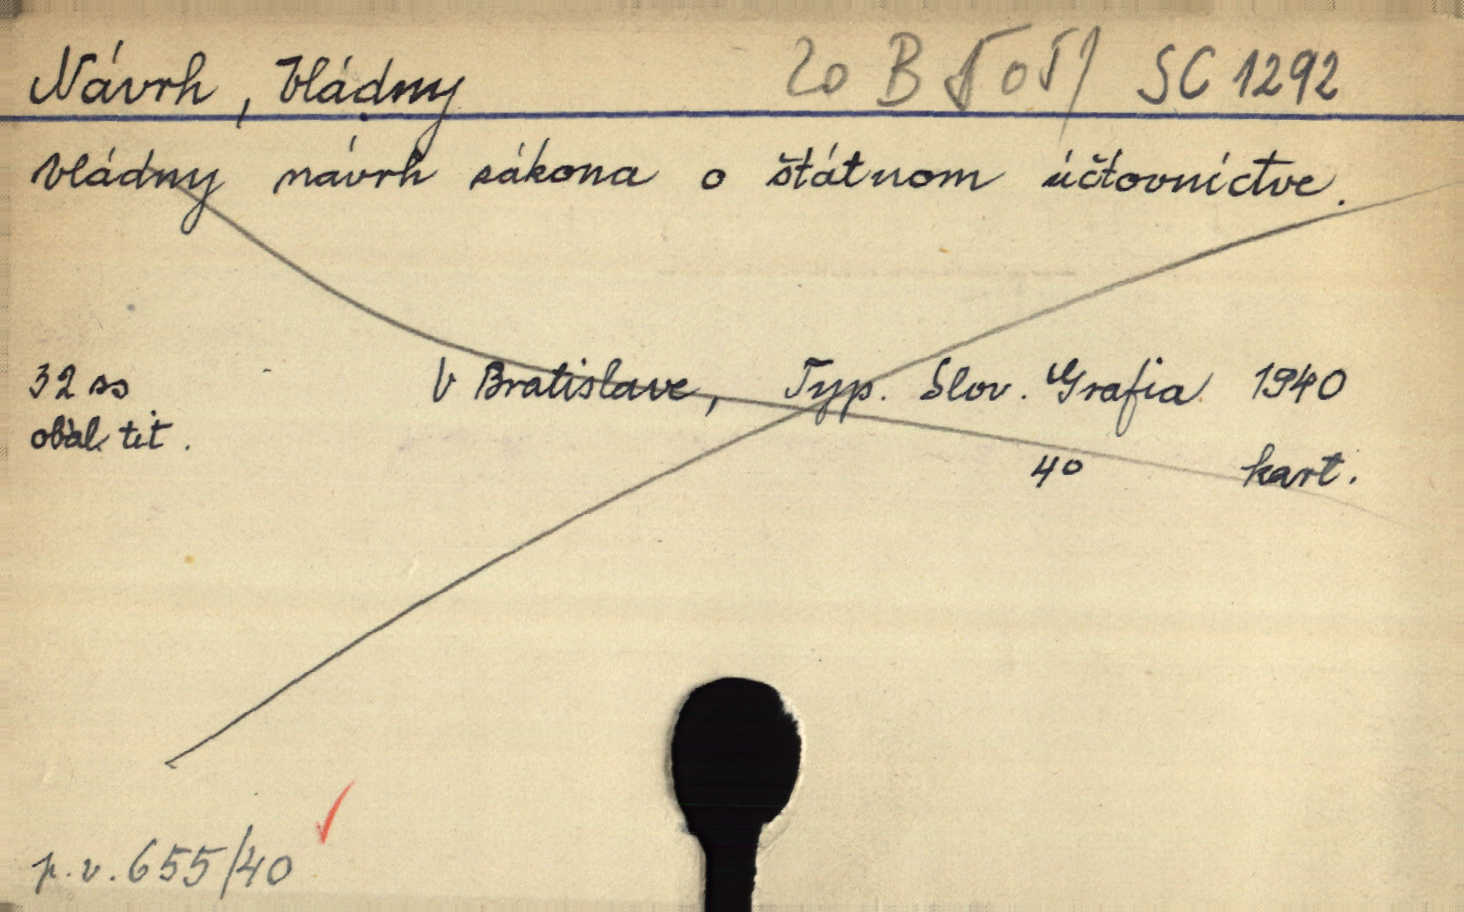 Návrh, Vládny 20 B SC 1292
Vládny návrh zákona o štátnom účtovníctve.
32 ss V Bratislave, Typ. Slov. Grafia 1940
obál. tit. 4° kart.
p.v. 655/40